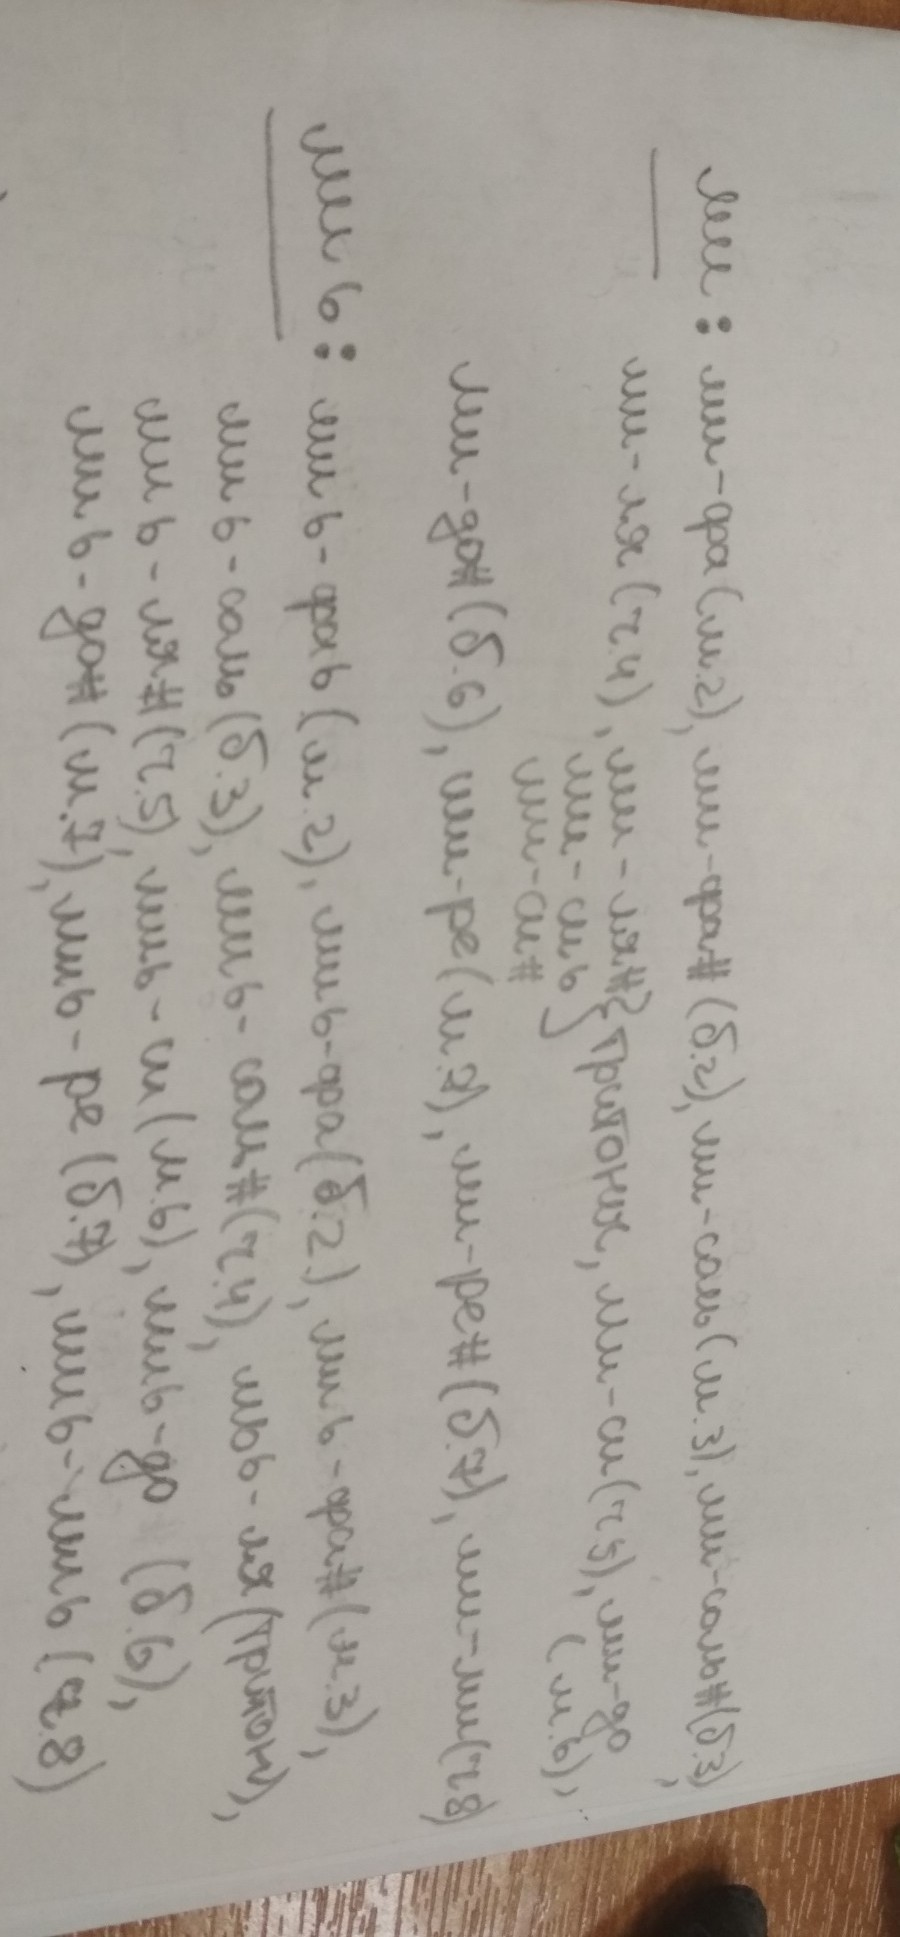 ми: ми-фа (м.2), ми-фа# (б.2), ми-соль (м.3), ми-соль# (б.3),
ми-ля (ч.4), ми-ля#} тритоних, ми-си (ч5), ми-до
ми-сиь
(м.6),
ми-си#
ми-до# (б.6), ми-ре (м.7), ми-ре# (б.7), ми-ми (ч8)
ми ь: миь-фаь (м.2), миь-фа (б.2), миь-фа# (м.3),
миь-соль (б.3), миь-соль# (ч.4), миь-ля (тритон),
миь-ля# (ч.5), миь-си (м.6), миь-до (б.6),
миь-до# (м.7), миь-ре (б.7), миь-миь (ч.8)